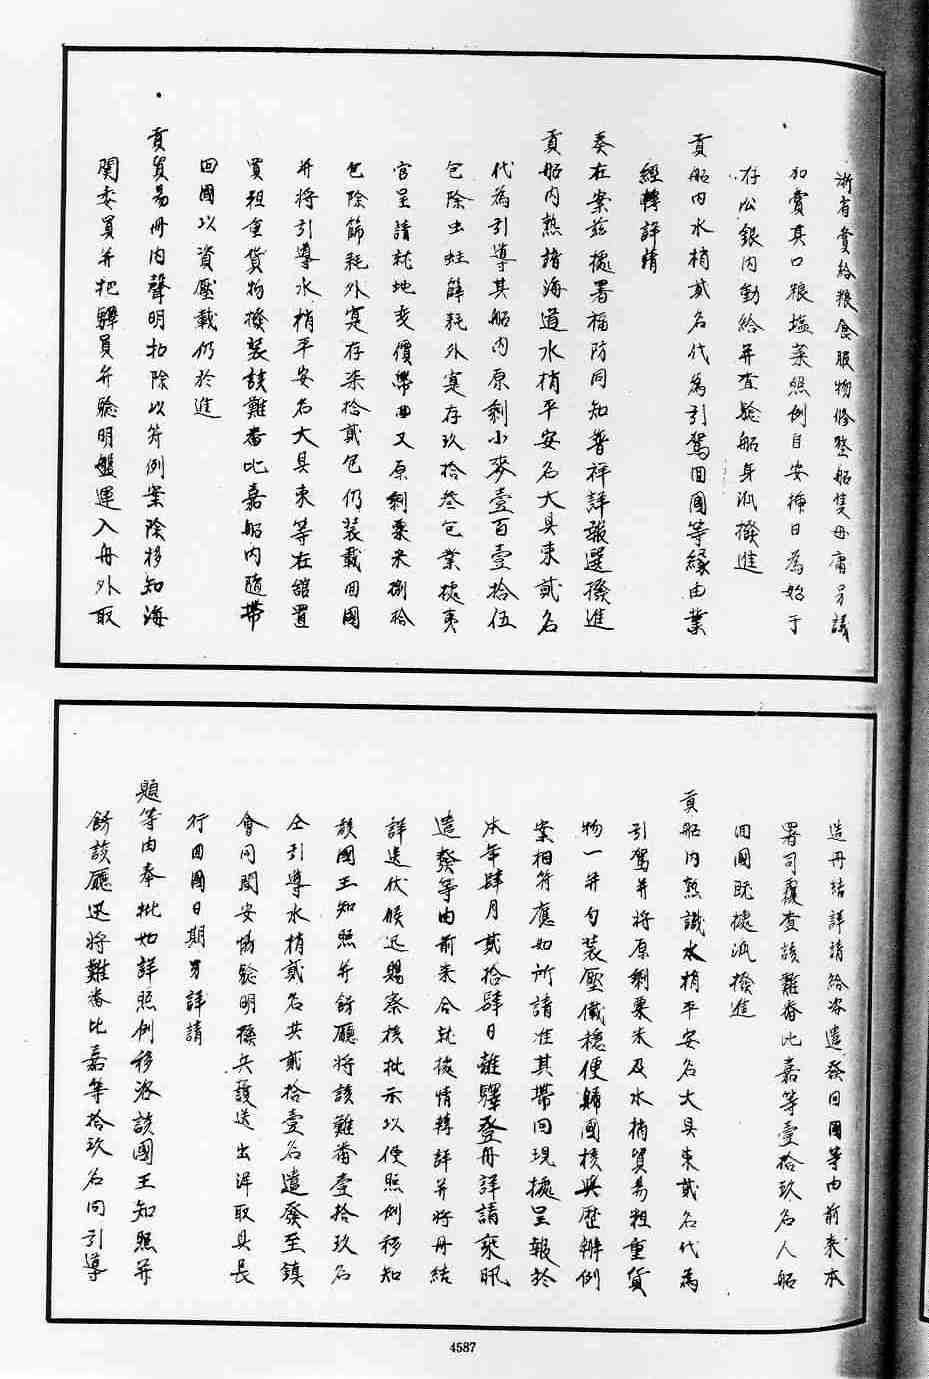 浙省賞給粮食服物修整船隻毋庸另議
加賞其口粮塩菜照例自安揷日為始于
存公銀内動給并查驗船身派撥進
貢船内水梢貳名代為引駕回國等縁由業
經轉詳請
奏在案玆據署福防同知普祥詳報選撥進
貢船内熟諳海道水梢平安名大具東貳名
代為引導其船内原剩小麥壹百壹拾伍
包除虫蛀篩耗外寔存玖拾叁包業據夷
官呈請就地变價 又原剩粟米捌拾
包除篩耗外寔存柒拾貳包仍装載回國
并将引導水梢平安名大具東等在舘置
買粗重貨物撥装該難番比嘉船内隨帶
回國以資壓載仍於進
貢貿易冊内聲明扣除以符例案除移知海
関委員并把驛員弁驗明盤運入舟外取
造冊結詳請給咨遣發回國等由前來本
署司覆查該難番比嘉等壹拾玖名人船
回國既據派撥進
貢船内熟識水梢平安名大具東貳名代為
引駕并将原剩粟米及水梢貿易粗重貨
物一并勻装壓儎穏便歸國核與歷辦例
案相符應如所請准其帶回現據呈報於
本年肆月貳拾肆日離驛登舟詳請乘汛
遣發等由前來合就據情轉詳并将冊結
詳送伏候迅賜察核批示以便照例移知
該國王知照并飭廳将該難番壹拾玖名
仝引導水梢貳名共貳拾壹名遣發至鎮
會同閩安協驗明撥兵護送出洋取具長
行回國日期另詳請
題等由奉批如詳照例移咨該國王知照并
飭該廳迅将難番比嘉等拾玖名同引導
4587